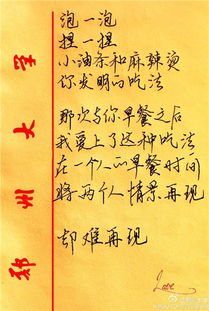 泡一泡
捏一捏
小油条和麻辣烫
你发明的吃法
那次与你早餐之后
我爱上了这种吃法
在一个人的早餐时间
将两个人情景再现
却难再现
Love
郑州大学